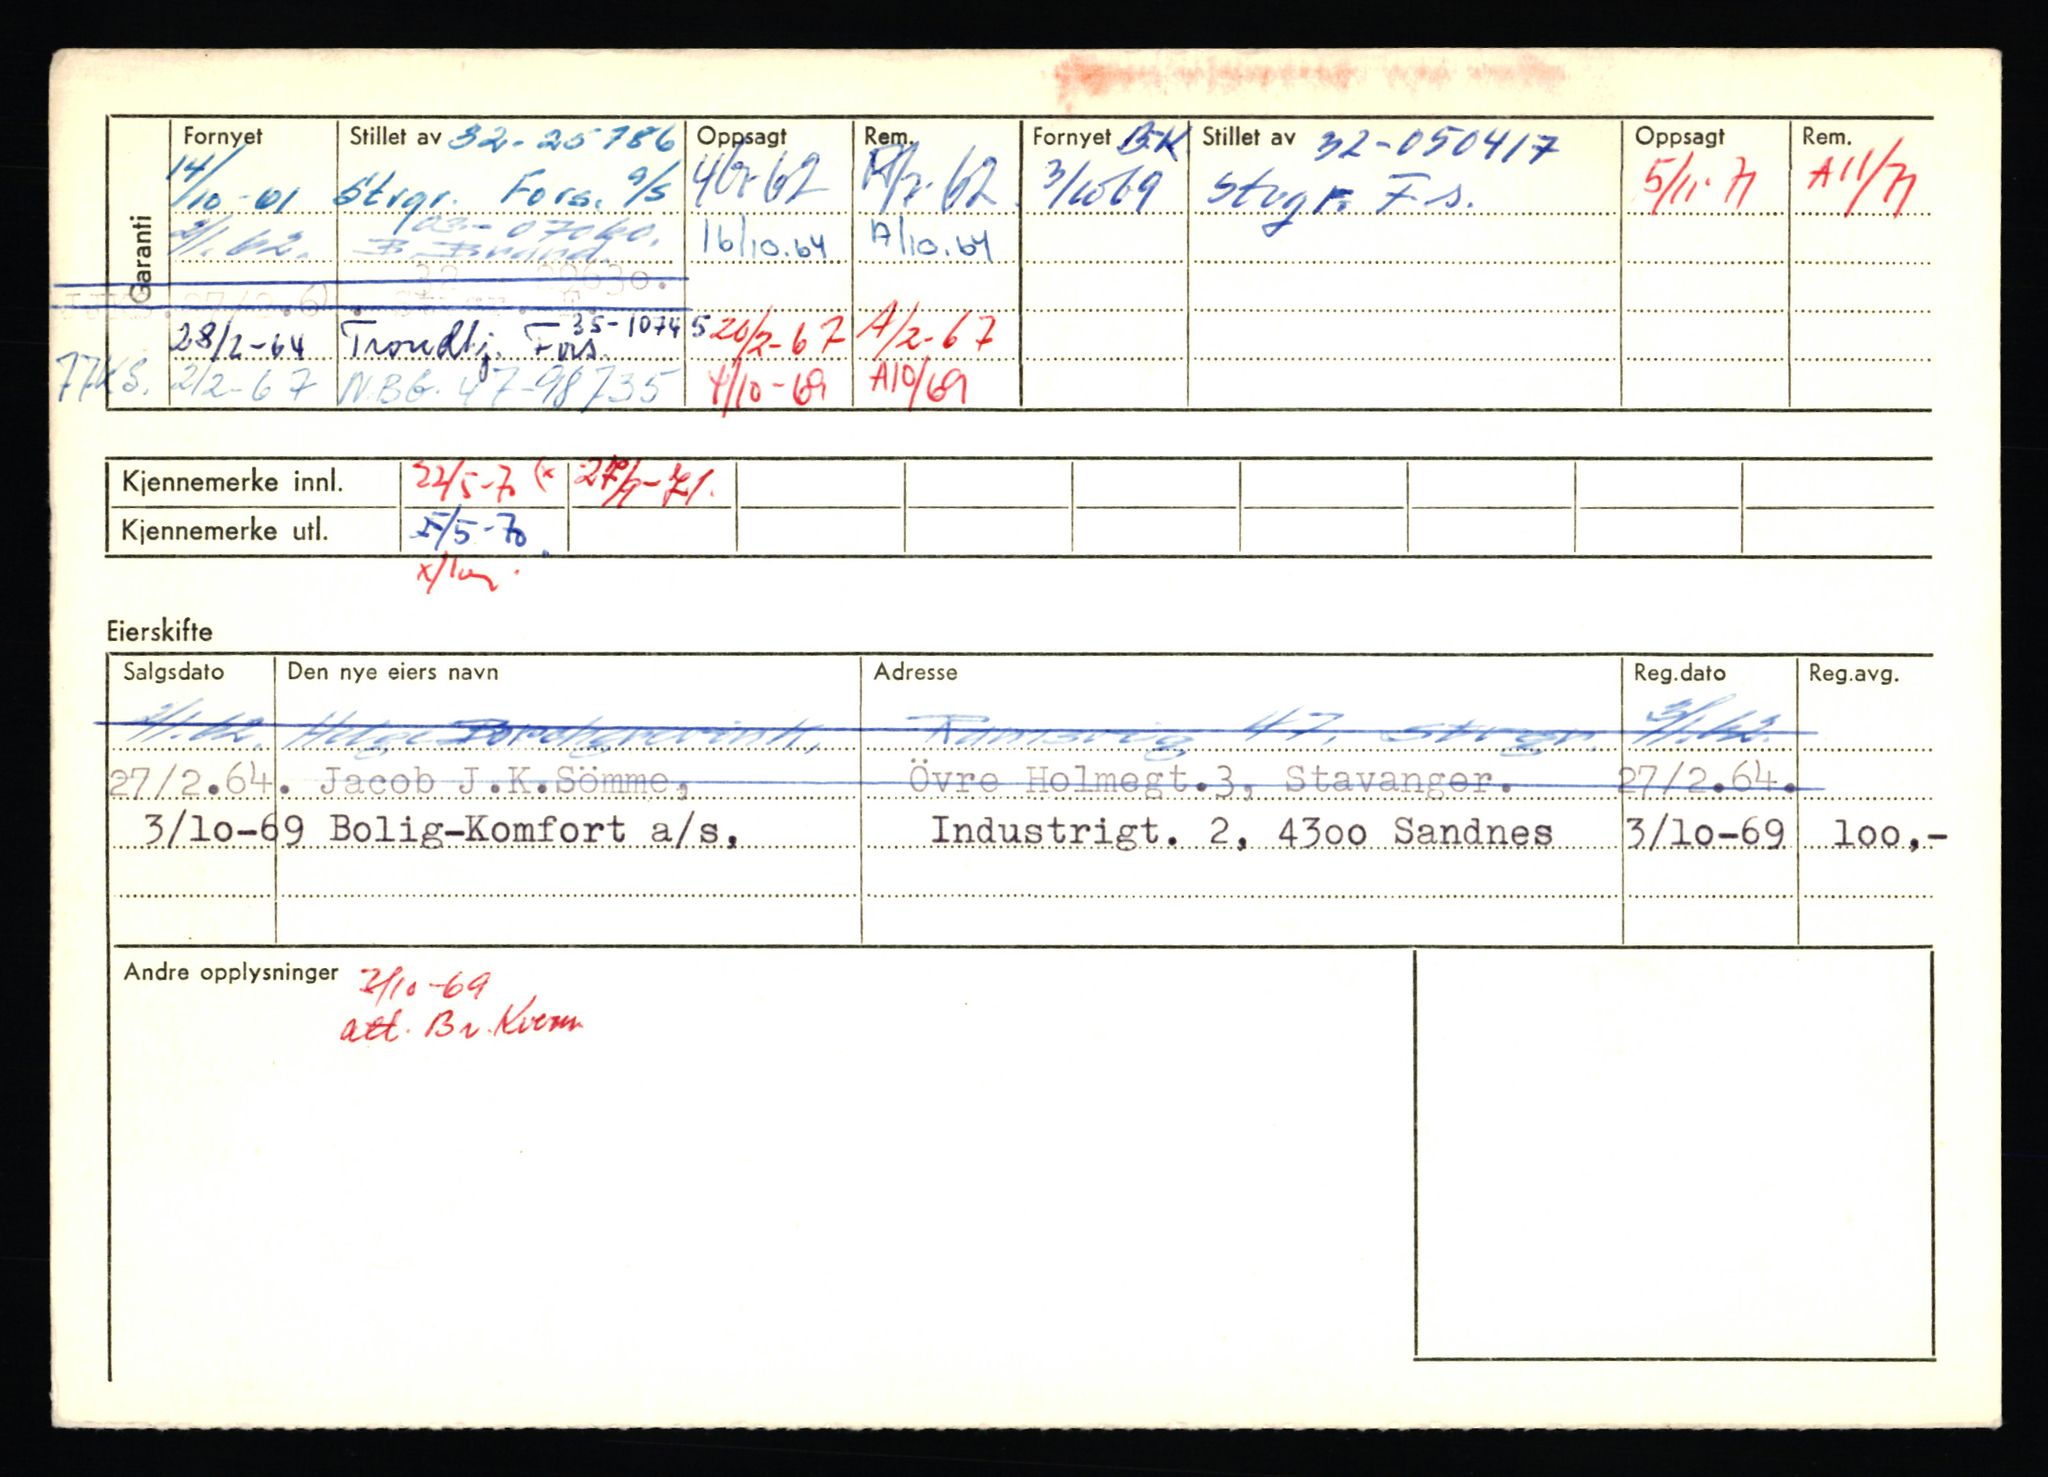 Garanti
Fornyet Stillet av 32-25786 Oppsagt Rem. Fornyet BK Stillet av 32-050417 Oppsagt Rem.
14/10-61 Strgr. Fors. a/s 3/10 69 Strgr. F.s. 5/11-71 A11/71
2/1.62. 03-07060. B. Brand 16/10.64 A/10.64
27/2.6
28/2-64 Trondhj. Fors. 35-10745 20/2-67 A/2-67
77KS. 2/2-67 N.BG. 47-98735 4/10-69 A10/69
Kjennemerke innl. 22/5-70 (x
Kjennemerke utl. 5/5-70
Eierskifte
Salgsdato Den nye eiers navn Adresse Reg.dato Reg.avg.
2/1.62. Helge Borchgrevink, Ramsvig 47, Strgr. 3/1.62.
27/2.64. Jacob J.K.Sömme, Övre Holmegt.3, Stavanger. 27/2.64.
3/10-69 Bolig-Komfort a/s, Industrigt. 2, 4300 Sandnes 3/10-69 100,-
Andre opplysninger 3/10-69
att. Br. Kverm